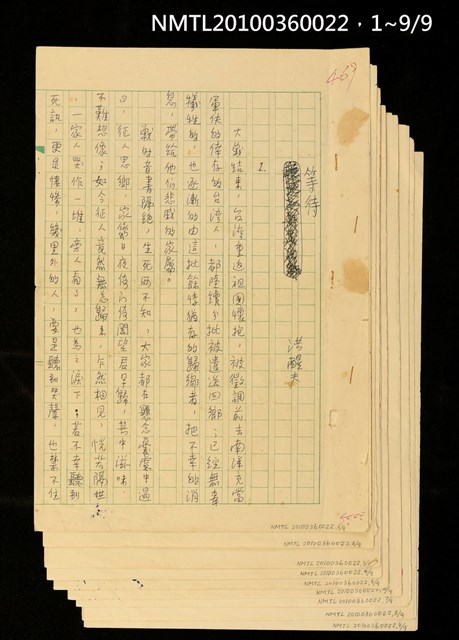 NMTL20100360022，1~9/9
469
等待
洪醒夫
1.
大戰結束，台灣重返祖國懷抱，被徵調前去南洋充當
軍伕的倖存的台灣人，都陸續分批被遣送回鄉；已經無辜
犧牲的，也逐漸的由這批餘悸猶存的歸鄉者，把不幸的消
息，帶給他們悲戚的家屬。
戰時音書隔絕，生死兩不知，大家都在懸念憂慮中過
日，征人思鄉，家眷日夜倚門倚閭望君早歸，其中滋味，
不難想像；如今征人竟然無恙歸來，乍然相見，恍若隔世
，一家人哭作一堆，旁人看了，也為之淚下；若不幸聽到
死訊，更是悽慘，幾里外的人，要是聽到哭聲，也禁不住
NMTL 20100360022, 1/9
NMTL 20100360022, 2/9
NMTL 20100360022, 3/9
NMTL 20100360022, 4/9
NMTL 20100360022, 5/9
NMTL 20100360022, 6/9
NMTL 20100360022, 7/9
NMTL 20100360022, 8/9
NMTL 20100360022, 9/9